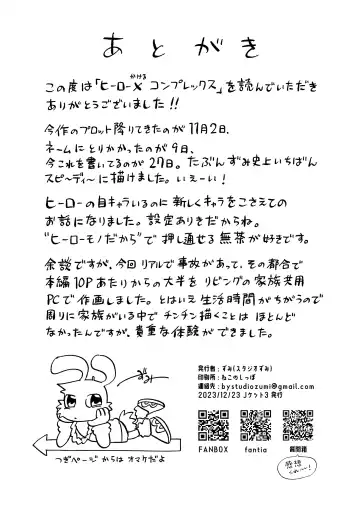 あとがき
この度は「ヒーロー×コンプレックス」を読んでいただき
かける
ありがとうございました!!
今作のプロット降りてきたのが11月2日、
ネームにとりかかったのが9日、
今これを書いてるのが27日。たぶんずみ史上いちばん
スピ〜ディ〜に描けました。いえーい!
ヒーローの自キャラいるのに新しくキャラをこさえての
お話になりました。設定ありきだからね。
"ヒーローモノだから"で押し通せる無茶が好きです。
余談ですが、今回リアルで事故があって、その都合で
本編10Pあたりからの大半をリビングの家族共用
PCで作画しました。とはいえ生活時間がちがうので
周りに家族がいる中でチンチン描くことはほとんど
なかったんですが、貴重な体験ができました。
ずみ
つぎページからはオマケだよ
発行者:ずみ(スタジオずみ)
印刷所:ねこのしっぽ
連絡先:bystudiozumi@gmail.com
2023/12/23 Jケット3 発行
FANBOX
fantia
質問箱
感想
くれ〜〜!